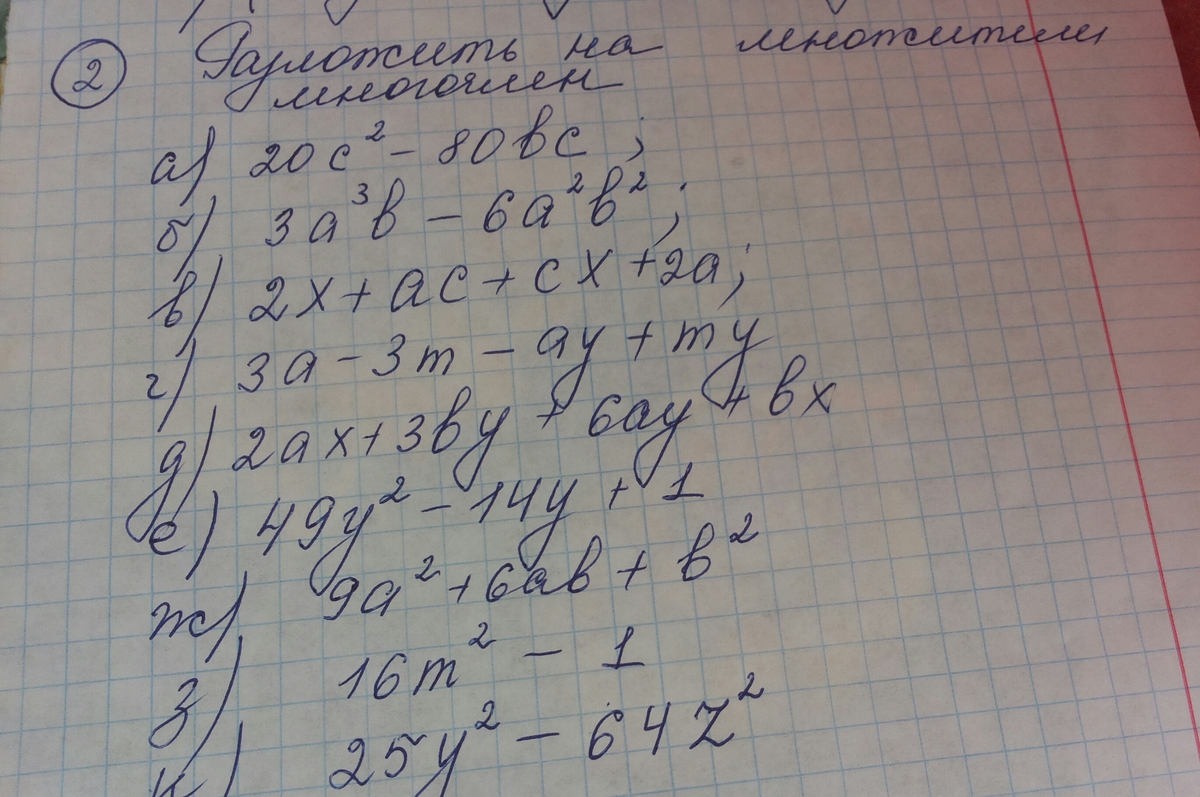 2 Разложить на множители
многочлен
а) 20c² - 80bc ;
б) 3a³b - 6a²b² ;
в) 2x + ac + cx + 2a ;
г) 3a - 3m - ay + my
д) 2ax + 3by + 6ay + bx
е) 49y² - 14y + 1
ж) 9a² + 6ab + b²
з) 16m² - 1
к) 25y² - 64z²